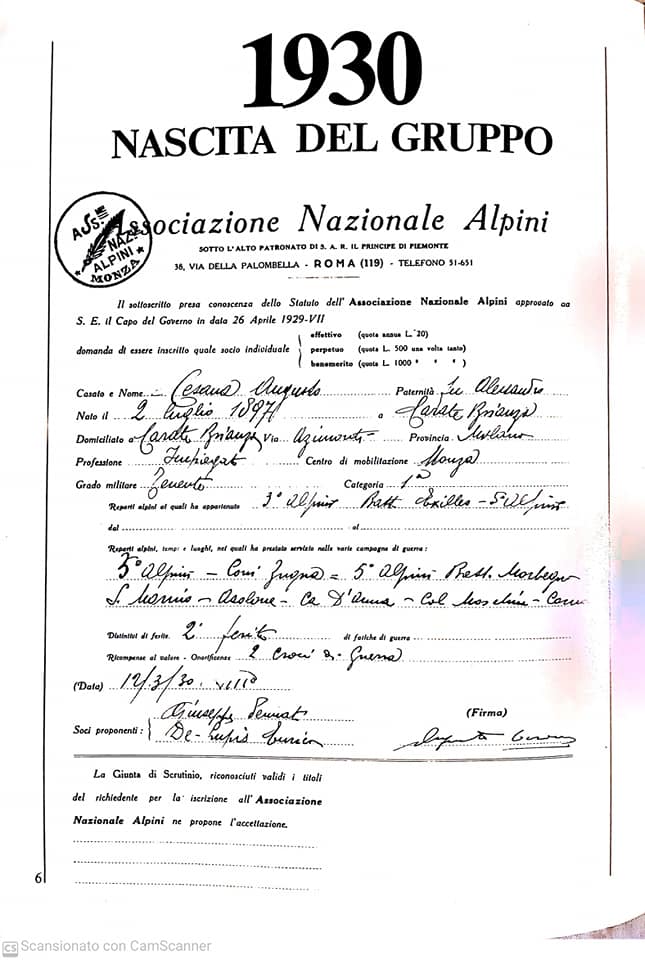 1930
NASCITA DEL GRUPPO
ASS. NAZ. ALPINI MONZA
Associazione Nazionale Alpini
SOTTO L'ALTO PATRONATO DI S. A. R. IL PRINCIPE DI PIEMONTE
38, VIA DELLA PALOMBELLA - ROMA (119) - TELEFONO 51-651
Il sottoscritto presa conoscenza dello Statuto dell'Associazione Nazionale Alpini approvato da
S. E. il Capo del Governo in data 26 Aprile 1929-VII
effettivo (quota annua L. 20)
domanda di essere inscritto quale socio individuale perpetuo (quota L. 500 una volta tanto)
benemerito (quota L. 1000 " " " )
Casato e Nome Cesana Augusto Paternità fu Alessandro
Nato il 2 luglio 1897 a Carate Brianza
Domiciliato a Carate Brianza Via Azimonti Provincia Milano
Professione Impiegato Centro di mobilitazione Monza
Grado militare Tenente Categoria 1a
Reparti alpini ai quali ha appartenuto 3° Alpini Batt Exilles - 5° Alpini
dal al
Reparti alpini, tempi e luoghi, nei quali ha prestato servizio nelle varie campagne di guerra:
5° Alpini - Coni Zugna = 5° Alpini Batt. Morbegno
Asolone - Ca D'Anna - Col Moschin -
Distintivi di ferite 2 ferite di fatiche di guerra
Ricompense al valore - Onorificenze 2 Croci di Guerra
(Data) 12/3/30 VIII°
Giuseppe (Firma)
Soci proponenti: De-Lupis Enrico
La Giunta di Scrutinio, riconosciuti validi i titoli
del richiedente per la iscrizione all'Associazione
Nazionale Alpini ne propone l'accettazione.
6
CS Scansionato con CamScanner